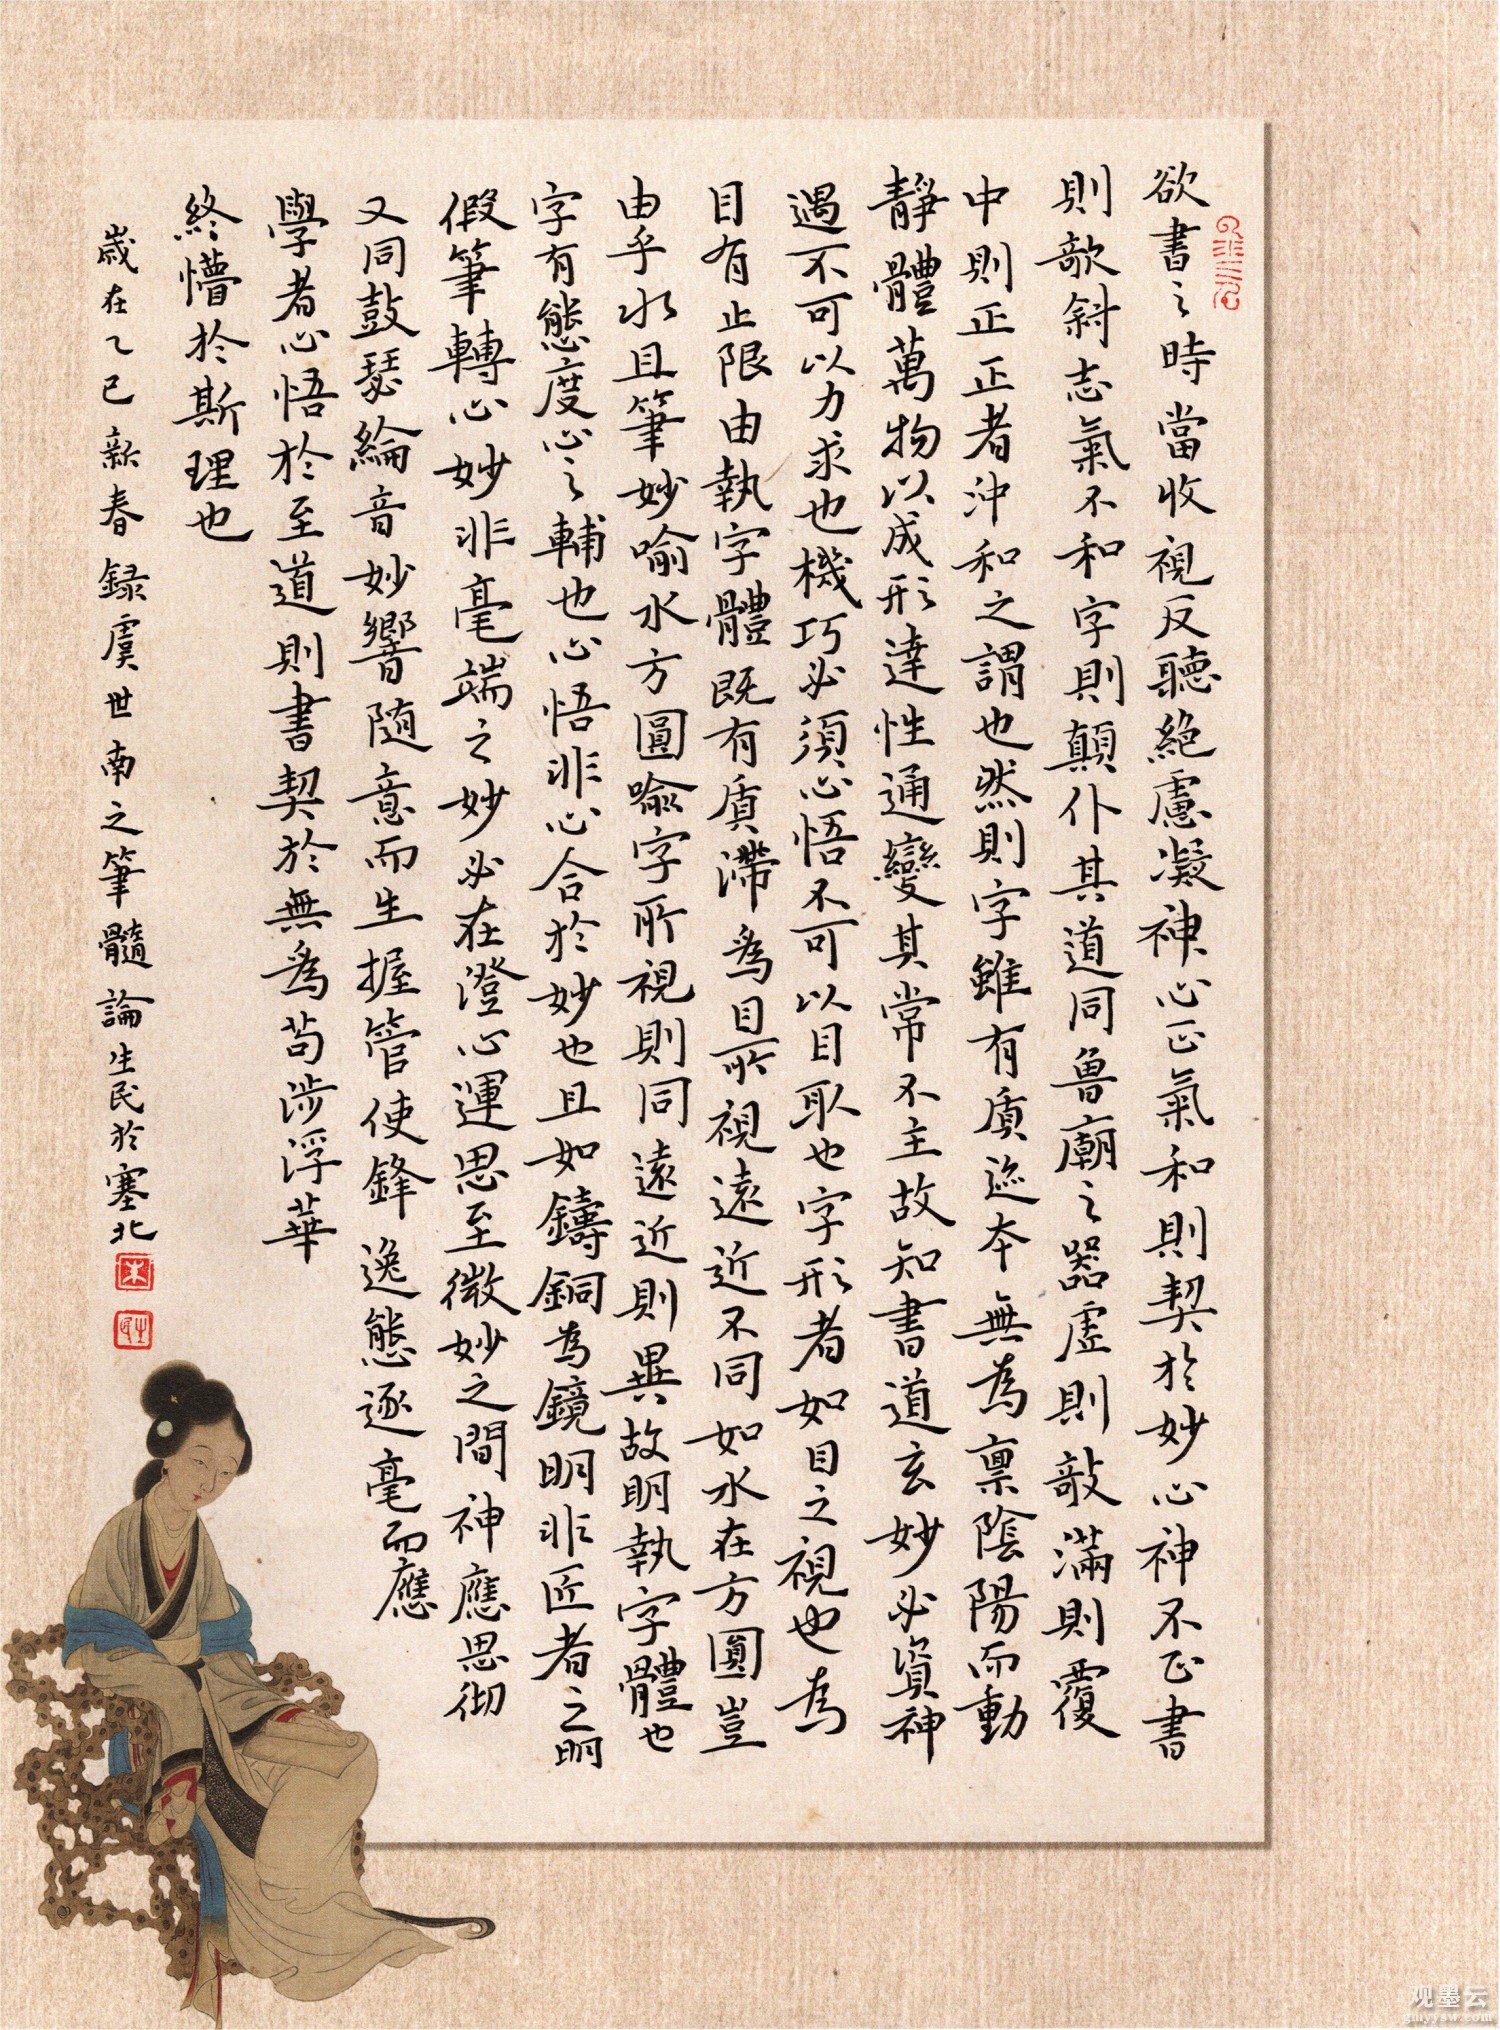 欲書之時當收視反聽絕慮凝神心正氣和則契於妙心神不正書
則欹斜志氣不和字則顛仆其道同魯廟之器虛則敧滿則覆
中則正正者沖和之謂也然則字雖有質迹本無為稟陰陽而動
靜體萬物以成形達性通變其常不主故知書道玄妙必資神
遇不可以力求也機巧必須心悟不可以目取也字形者如目之視也為
目有止限由執字體既有質滯為目所視遠近不同如水在方圓豈
由乎水且筆妙喻水方圓喻字所視則同遠近則異故明執字體也
字有態度心之輔也心悟非心合於妙也且如鑄銅為鏡明非匠者之明
假筆轉心妙非毫端之妙必在澄心運思至微妙之間神應思彻
又同鼓瑟綸音妙響隨意而生握管使鋒逸態逐毫而應
學者心悟於至道則書契於無為苟涉浮華
終懵於斯理也
歲在乙巳新春録虞世南之筆髓論生民於塞北
观墨云
gmyysw.com